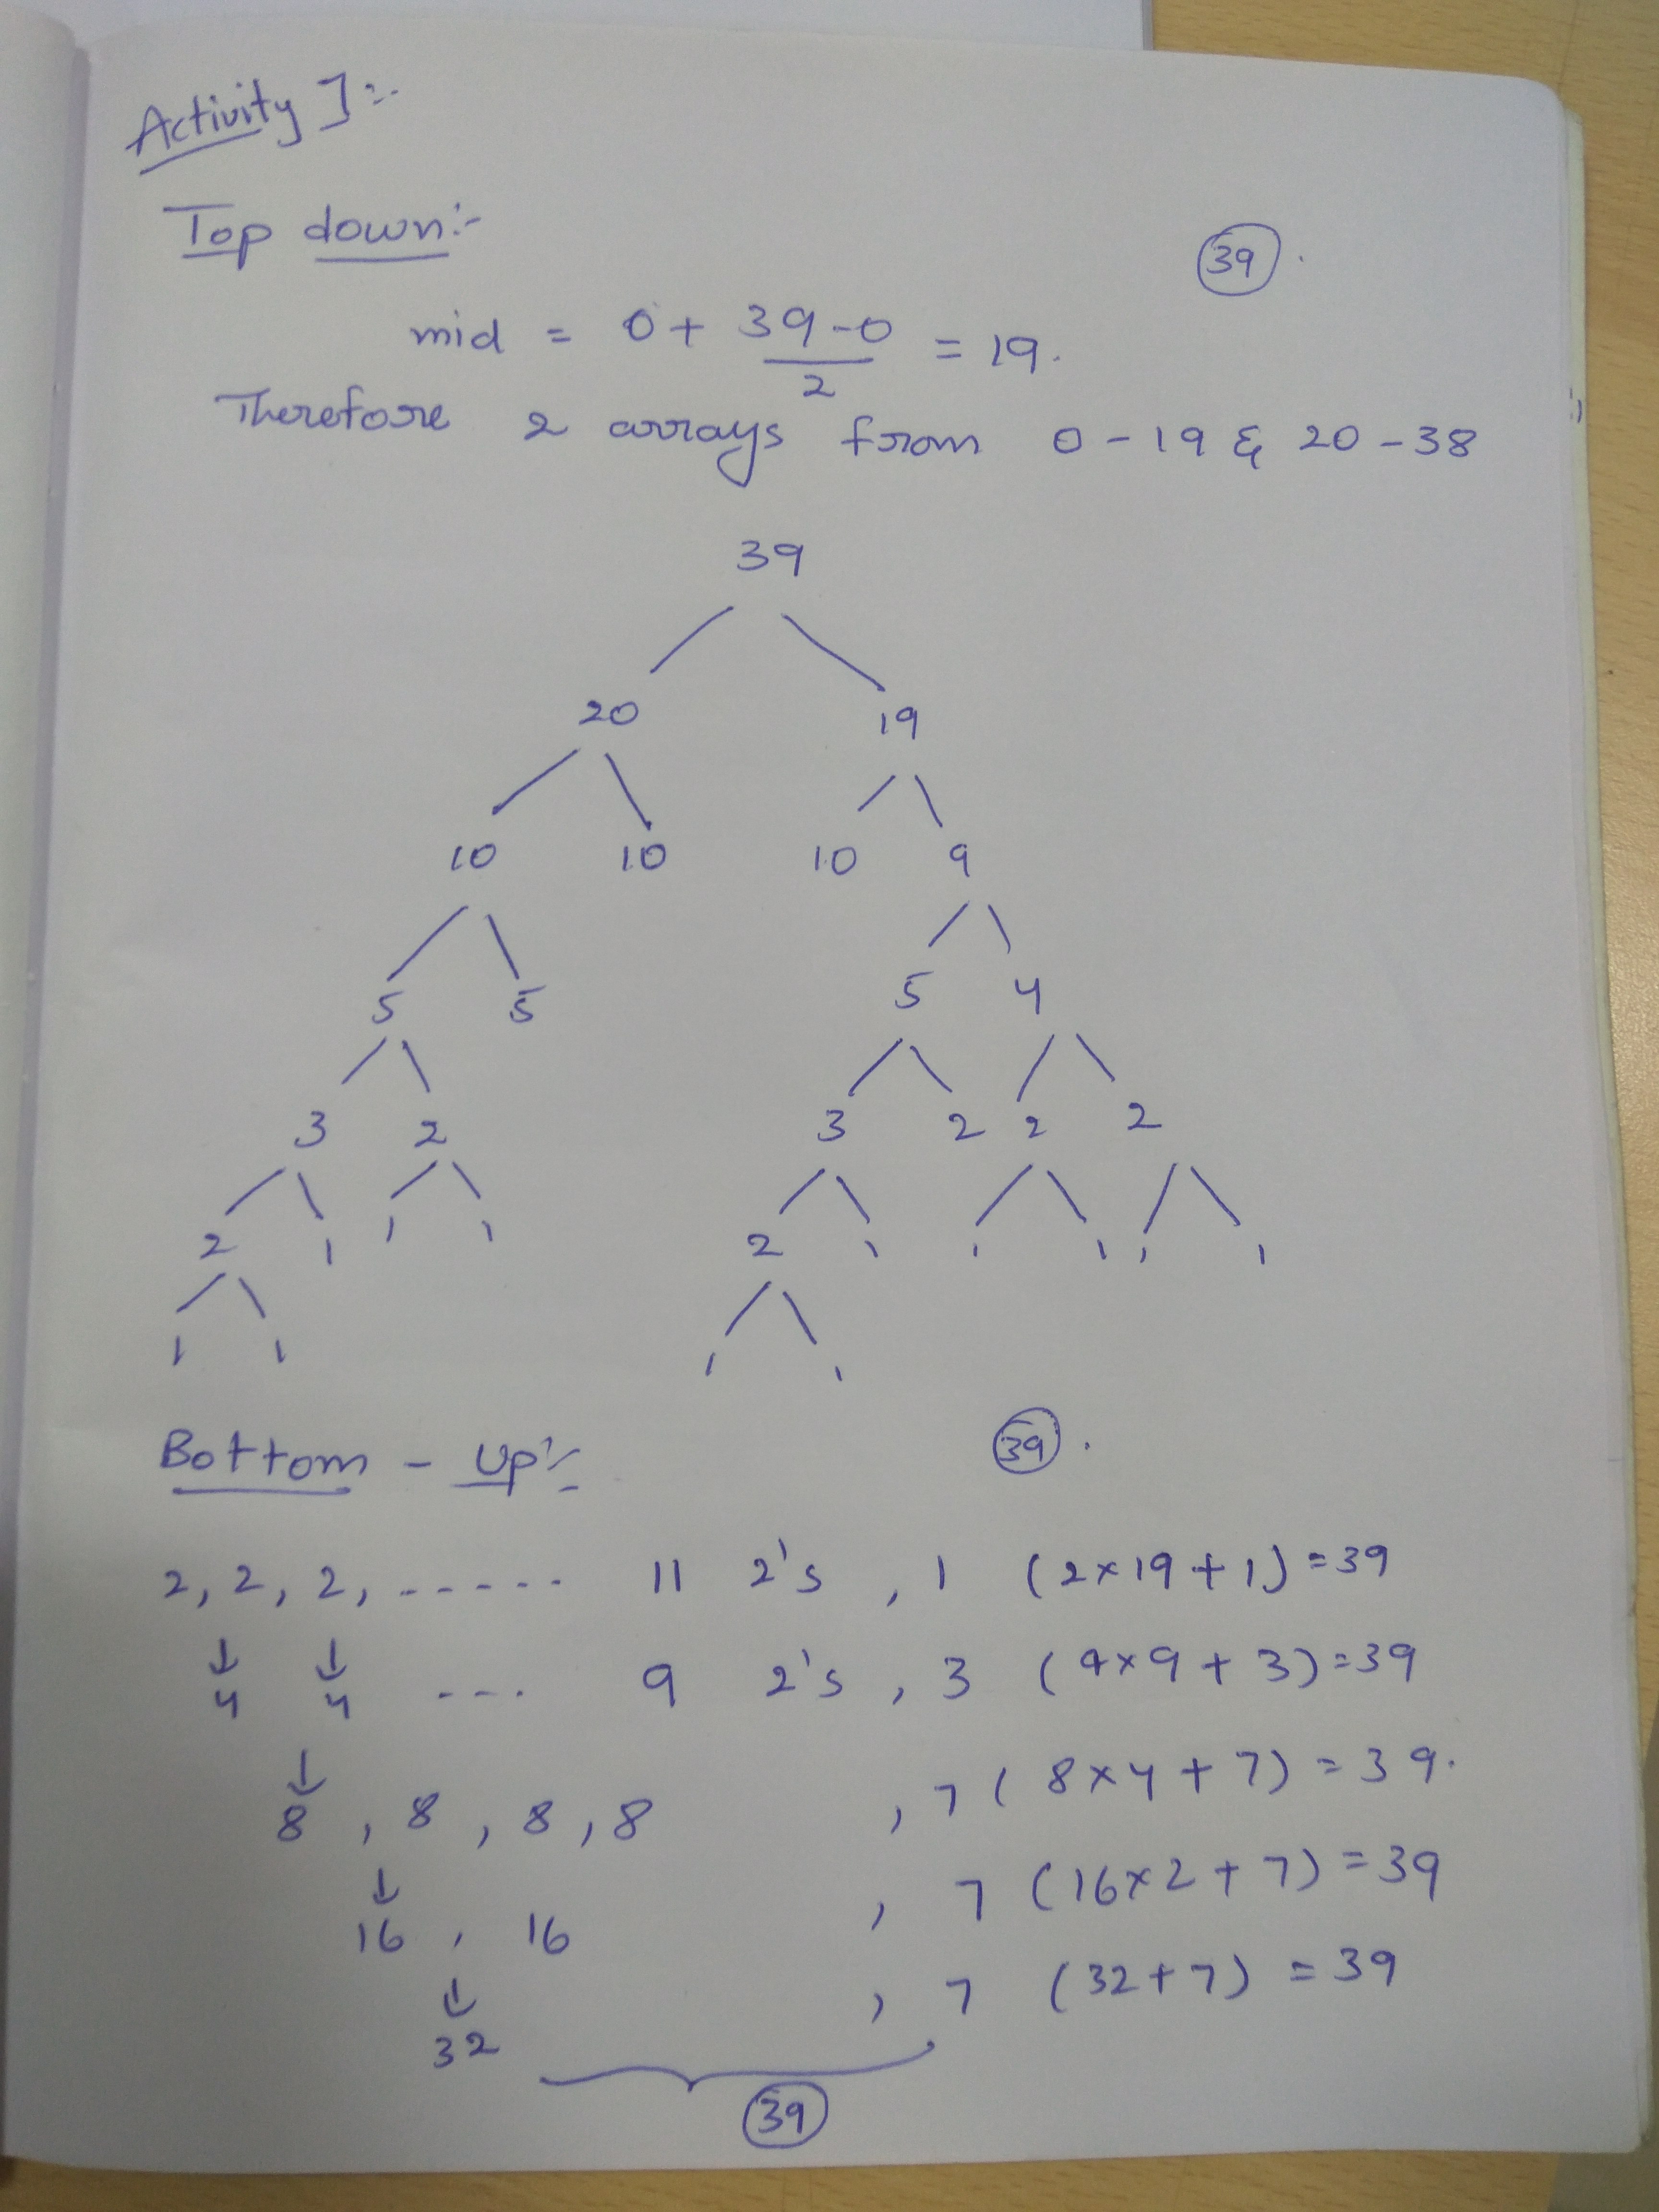 Activity 1:-
Top down:-
39.
mid = 0 + 39-0/2 = 19.
Therefore 2 arrays from 0-19 & 20-38
39
20 19
10 10 10 9
5 5 5 4
3 2 3 2 2 2
2 1 1 1 2 1 1 1 1 1
1 1 1 1
Bottom - Up:-
39.
2, 2, 2, ------ 11 2's , 1 (2x19+1)=39
4 4 --- 9 2's , 3 (4x9+3)=39
8 , 8 , 8 , 8 , 7 (8x4+7)=39.
16 , 16 , 7 (16x2+7)=39
32 , 7 (32+7) = 39
39